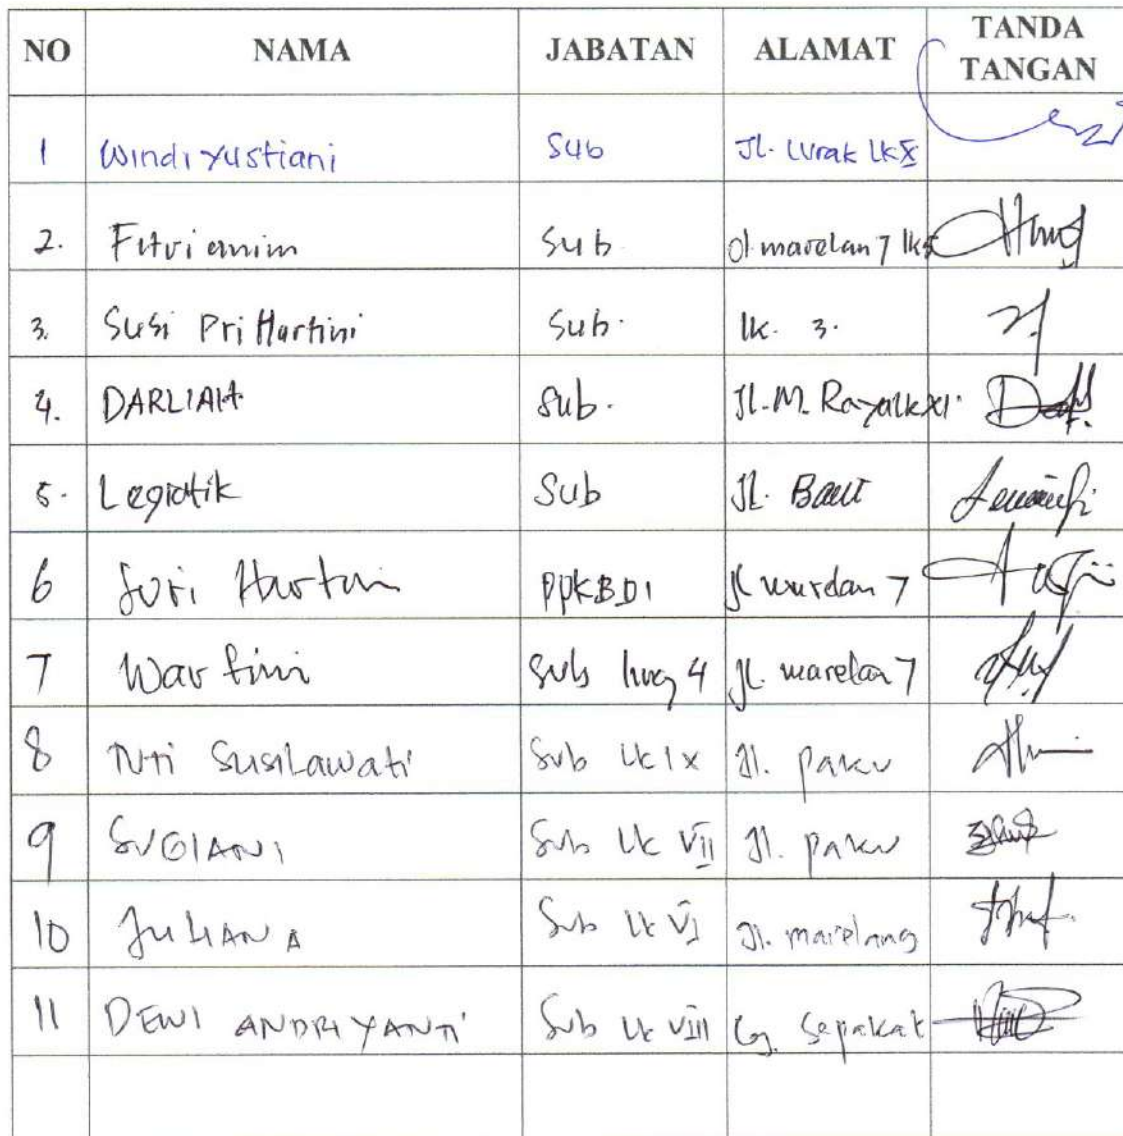 NO NAMA JABATAN ALAMAT TANDA TANGAN
1 Windi Yustiani Sub Jl. Lurak Lk X
2. Fitri Sub Jl. marelan 7 lk 5
3. Susi Pri Hartini Sub. lk. 3.
4. DARLIAH Sub. Jl. M. Raya lk XI.
5. Legiatik Sub Jl. Baut
6 Suri Hartini PPKBD1 Jl marelan 7
7 Wartini Sub ling 4 Jl. marelan 7
8 Tuti Susilawati Sub Lk IX Jl. paku
9 SUGIANI Sub Lk VII Jl. paku
10 JULIANA Sub Lk VI Jl. marelang
11 DEWI ANDRIYANTI Sub Lk VIII Gg. Sepakat